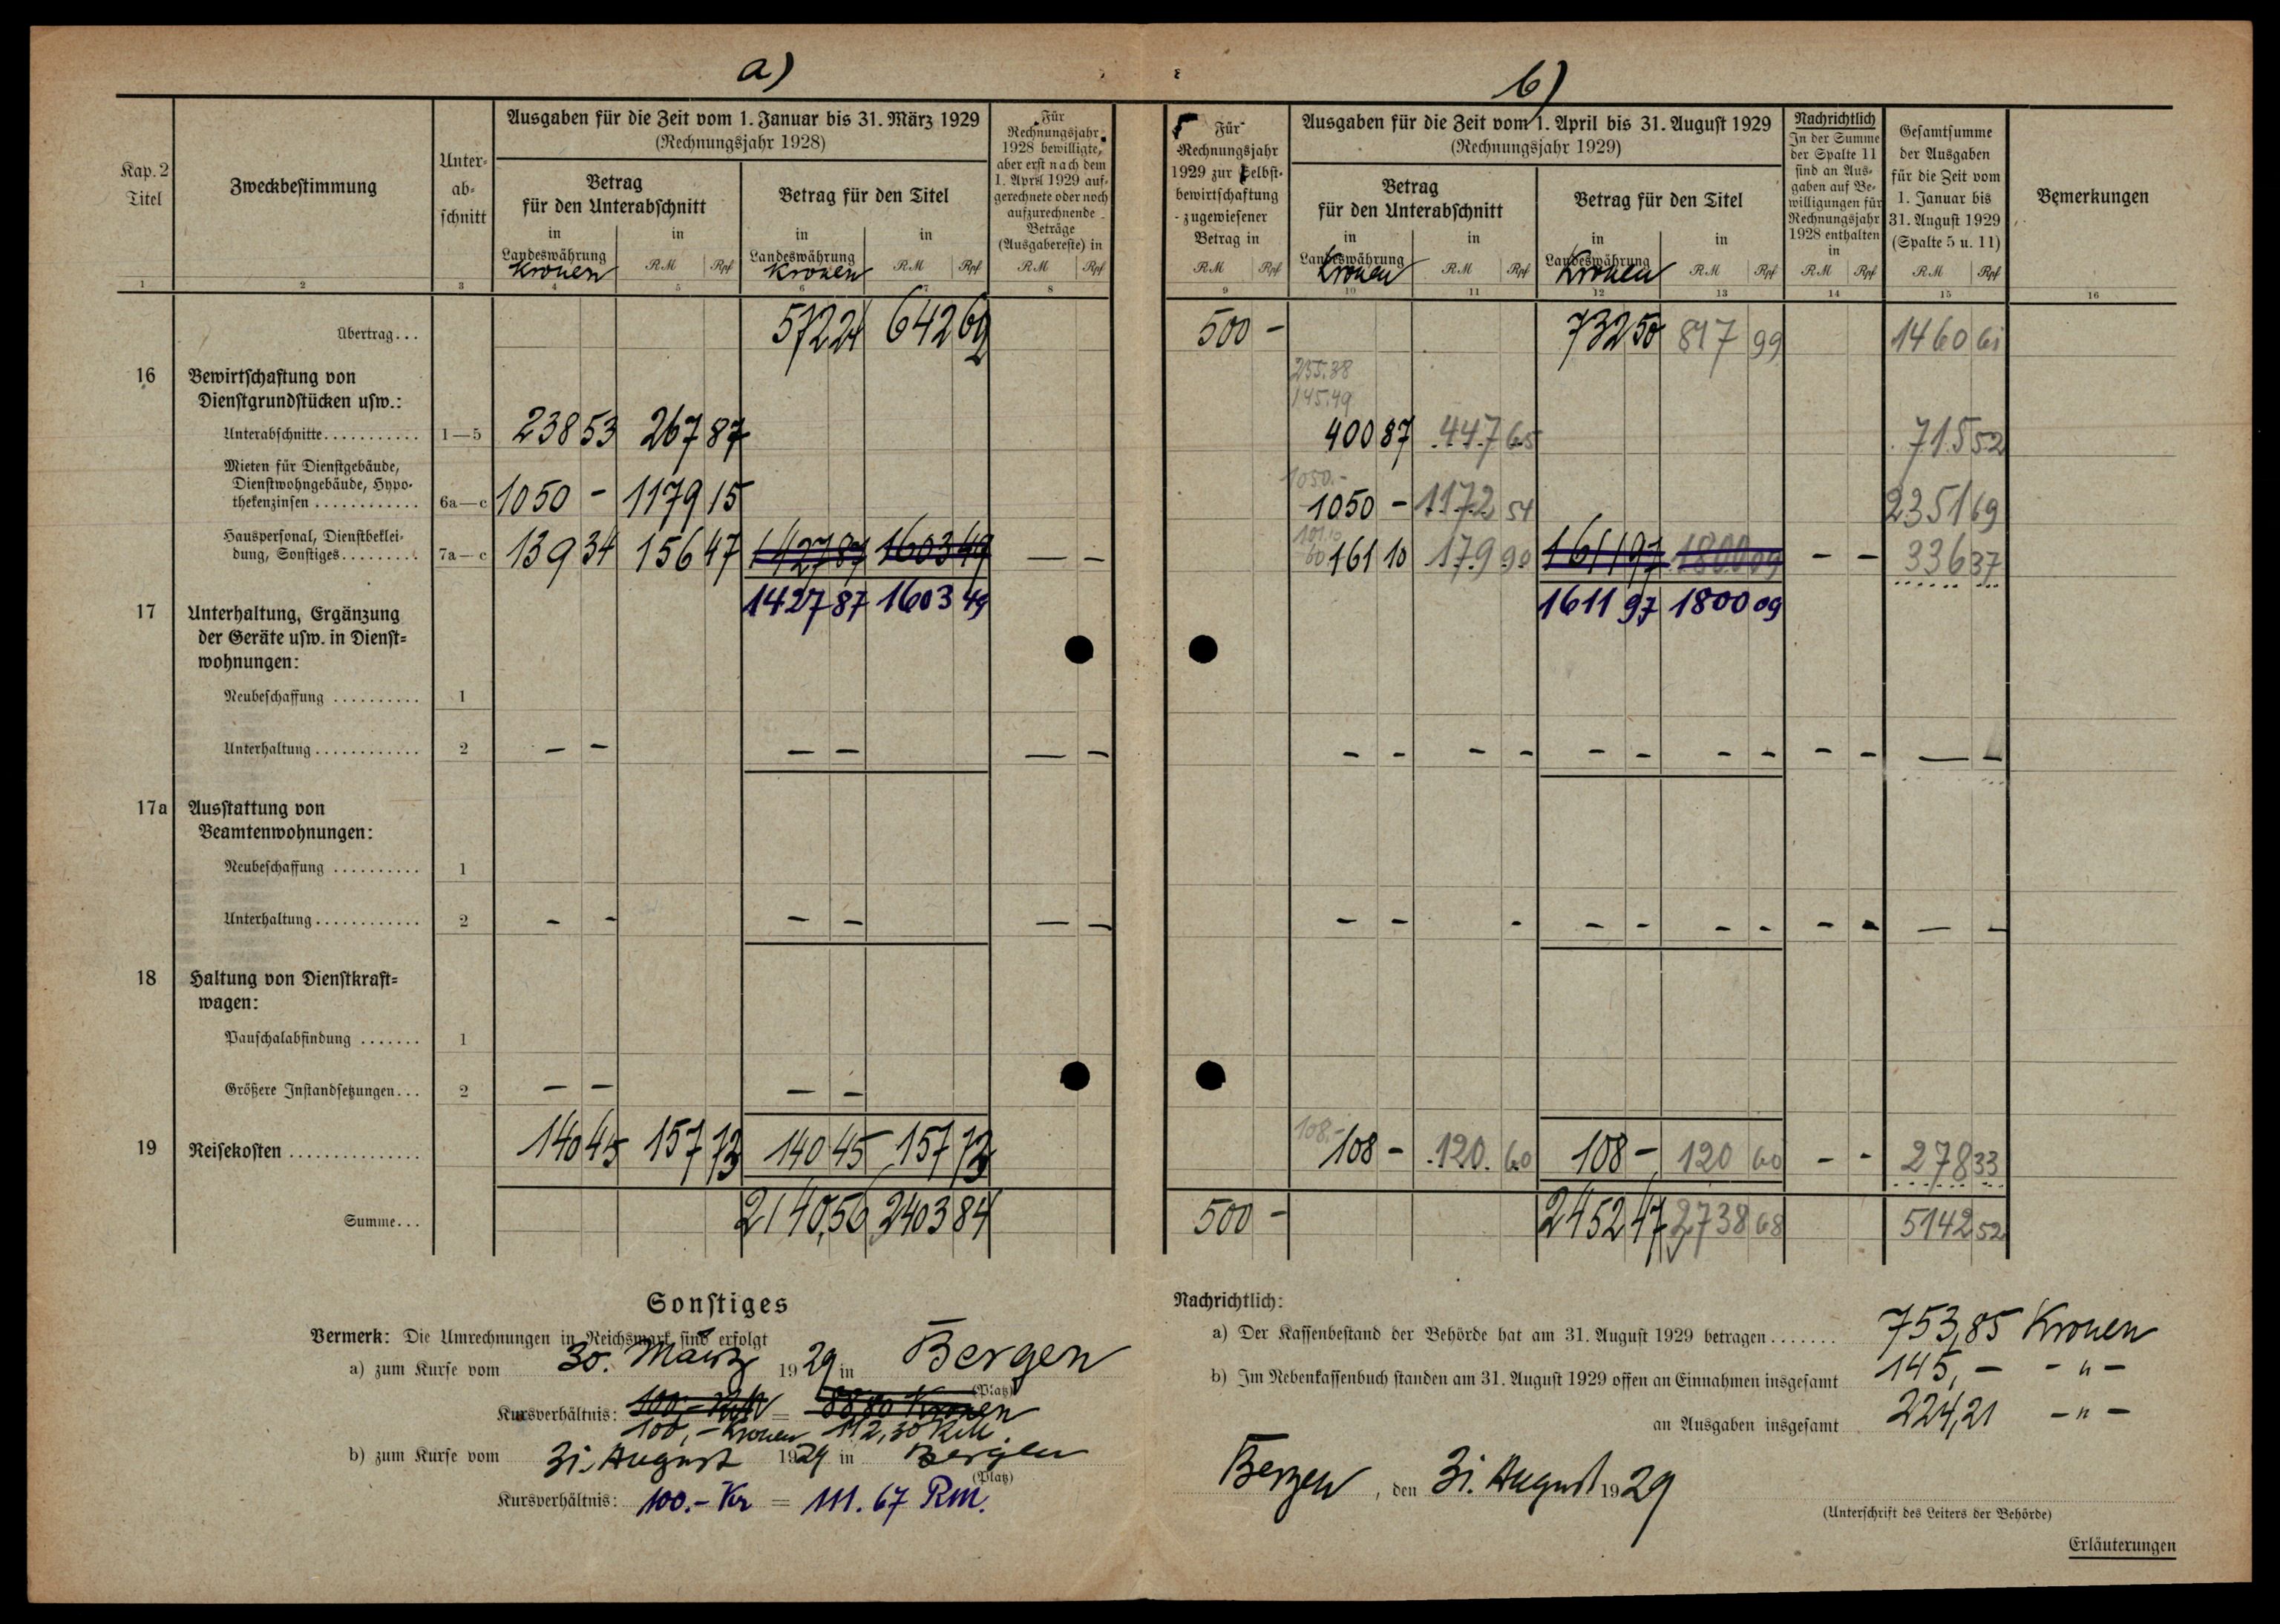 a)
b)
Kap. 2 Titel
Zweckbestimmung
Unter-ab-schnitt
Ausgaben für die Zeit vom 1. Januar bis 31. März 1929
(Rechnungsjahr 1928)
Betrag für den Unterabschnitt
in Landeswährung Kronen
in RM Rpf
Betrag für den Titel
in Landeswährung Kronen
in RM Rpf
Für Rechnungsjahr 1928 bewilligte, aber erst nach dem 1. April 1929 aufgerechnete oder noch aufzurechnende Beträge (Ausgabereste) in
RM Rpf
Für Rechnungsjahr 1929 zur Selbst-bewirtschaftung zugewiesener Betrag in
RM Rpf
Ausgaben für die Zeit vom 1. April bis 31. August 1929
(Rechnungsjahr 1929)
Betrag für den Unterabschnitt
in Landeswährung Kronen
in RM Rpf
Betrag für den Titel
in Landeswährung Kronen
in RM Rpf
Nachrichtlich
In der Summe der Spalte 11 sind an Aus-gaben auf Be-willigungen für Rechnungsjahr 1928 enthalten in
RM Rpf
Gesamtsumme der Ausgaben für die Zeit vom 1. Januar bis 31. August 1929 (Spalte 5 u. 11)
RM Rpf
Bemerkungen
1 2 3 4 5 6 7 8 9 10 11 12 13 14 15 16
Übertrag... 572 24 642 69 500 - 732 50 817 99 1460 61
16 Bewirtschaftung von
Dienstgrundstücken usw.:
255.38
145.49
Unterabschnitte........... 1—5 238 53 267 87 400 87 447 65 715 52
Mieten für Dienstgebäude,
Dienstwohngebäude, Hypo-
1050.-
thekenzinsen............ 6a—c 1050 - 1179 15 1050 - 1172 54 2351 69
Hauspersonal, Dienstbeklei-
101.10
60
dung, Sonstiges......... 7a—c 139 34 156 47 1427 87 1603 49 — — 161 10 179 90 1611 97 1800 09 - - 336 37
1427 87 1603 49 1611 97 1800 09
17 Unterhaltung, Ergänzung
der Geräte usw. in Dienst-
wohnungen:
Neubeschaffung .......... 1
Unterhaltung............ 2 - - - - — - - - - - - - - - - - — -
17a Ausstattung von
Beamtenwohnungen:
Neubeschaffung .......... 1
Unterhaltung............ 2 - - - - — - - - - - - - - - - — -
18 Haltung von Dienstkraft-
wagen:
Pauschalabfindung ....... 1
Größere Instandsetzungen... 2 - - - -
108.-
19 Reisekosten............... 140 45 157 73 140 45 157 73 108 - 120 60 108 - 120 60 - - 278 33
Summe... 2140,56 2403 84 500 - 2452 47 2738 68 5142 52
Sonstiges
Vermerk: Die Umrechnungen in Reichsmark sind erfolgt
a) zum Kurse vom 30. März 1929 in Bergen
(Platz)
Kursverhältnis: 100,- RM = 88,80 Kronen
100,- Kronen 112,30 RM.
b) zum Kurse vom 31. August 1929 in Bergen
(Platz)
Kursverhältnis: 100.- Kr = 111.67 Rm.
Nachrichtlich:
a) Der Kassenbestand der Behörde hat am 31. August 1929 betragen....... 753,85 Kronen
b) Im Nebenkassenbuch standen am 31. August 1929 offen an Einnahmen insgesamt 145,- - " -
an Ausgaben insgesamt 224,21 - " -
Bergen, den 31. August 1929
(Unterschrift des Leiters der Behörde)
Erläuterungen